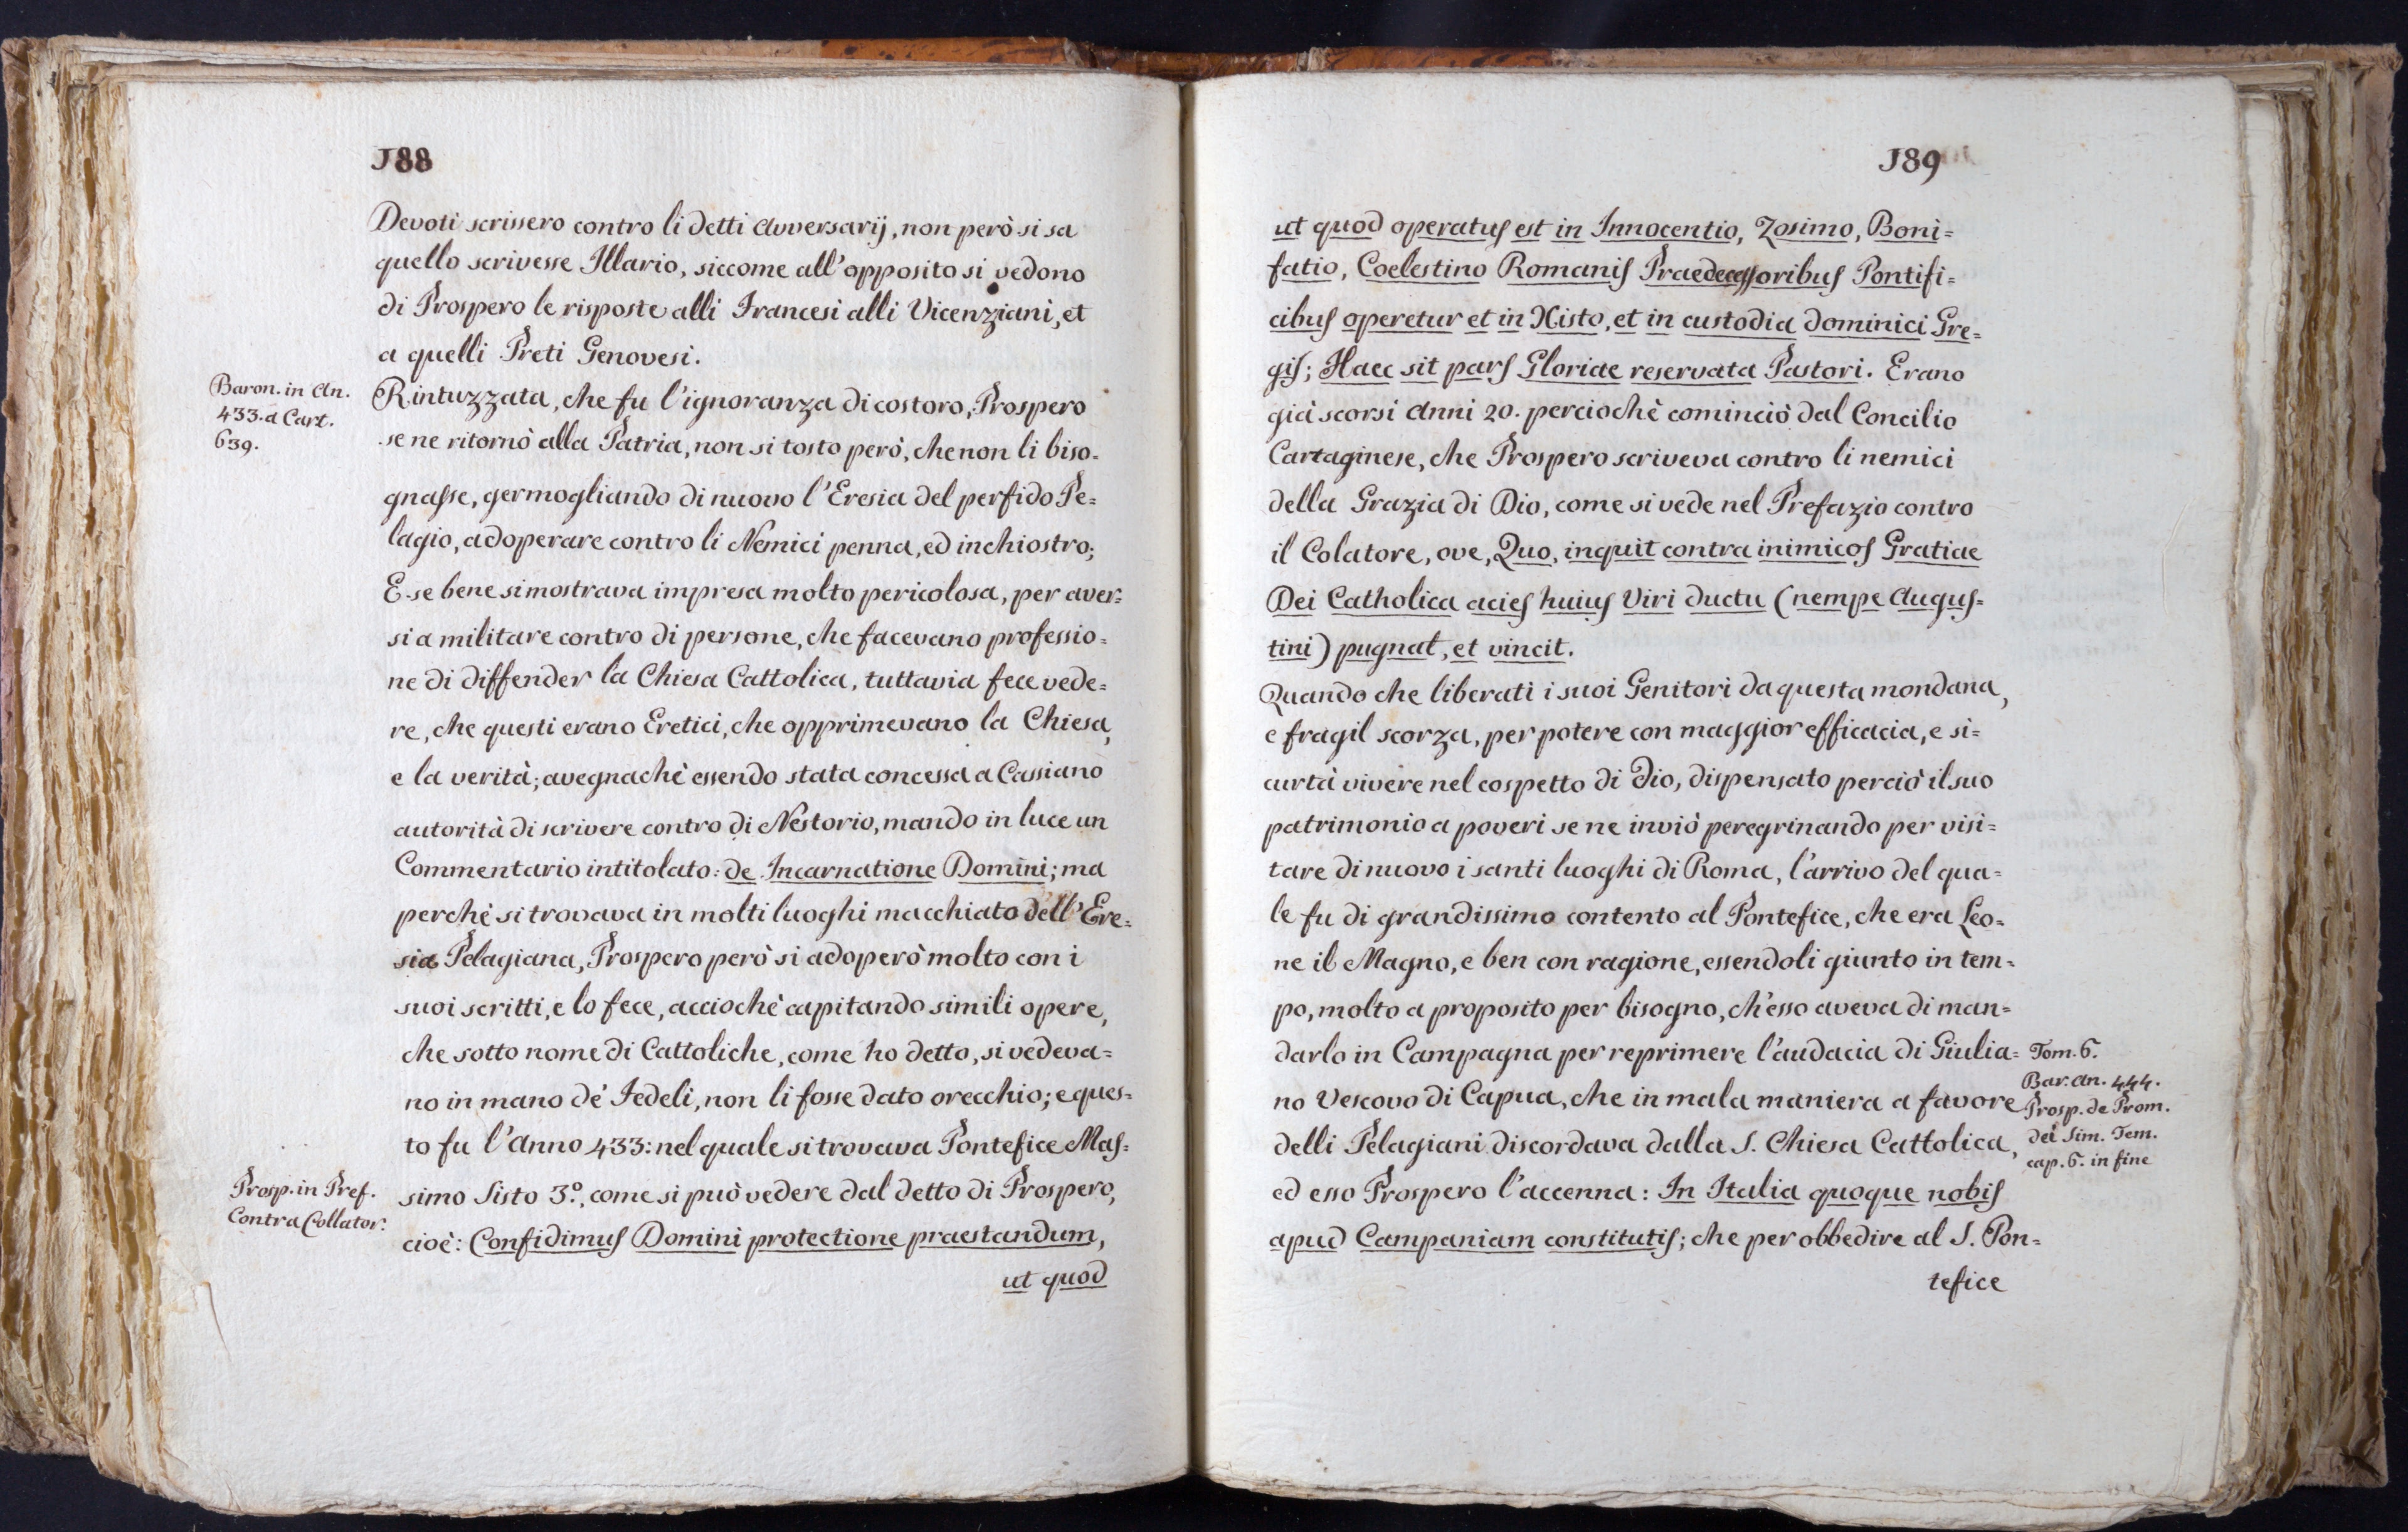 188
Devoti scrissero contro li detti Avversarij, non però si sa
quello scrivesse Illario, siccome all'opposito si vedono
di Prospero le risposte alli Francesi alli Vicenziani, et
a quelli Preti Genovesi.
Baron. in An.
433. a Cart.
639.
Rintuzzata, che fu l'ignoranza di costoro, Prospero
se ne ritornò alla Patria, non si tosto però, che non li biso-
gnasse, germogliando di nuovo l'Eresia del perfido Pe=
lagio, adoperare contro li Nemici penna, ed inchiostro;
E se bene si mostrava impresa molto pericolosa, per aver=
si a militare contro di persone, che facevano professio=
ne di diffender la Chiesa Cattolica, tuttavia fece vede=
re, che questi erano Eretici, che opprimevano la Chiesa,
e la verità; avegnachè essendo stata concessa a Cassiano
autorità di scrivere contro di Nestorio, mando in luce un
Commentario intitolato: de Incarnatione Domini; ma
perchè si trovava in molti luoghi macchiato dell'Ere=
sia Pelagiana, Prospero però si adoperò molto con i
suoi scritti, e lo fece, acciochè capitando simili opere,
che sotto nome di Cattoliche, come ho detto, si vedeva=
no in mano de' Fedeli, non li fosse dato orecchio; e ques=
to fu l'Anno 433: nel quale si trovava Pontefice Mas=
Prosp. in Pref.
Contra Collator.
simo Sisto 3.º, come si può vedere dal detto di Prospero,
cioè: Confidimus Domini protectione praestandum,
ut quod
189
ut quod operatus est in Innocentio, Zosimo, Boni=
fatio, Coelestino Romanis Praedecessoribus Pontifi=
cibus operetur et in Xisto, et in custodia dominici Gre=
gis; Haec sit pars Gloriae reservata Pastori. Erano
già scorsi Anni 20. perciochè cominciò dal Concilio
Cartaginese, che Prospero scriveva contro li nemici
della Grazia di Dio, come si vede nel Prefazio contro
il Colatore, ove, Quo, inquit contra inimicos Gratiae
Dei Catholica acies huius Viri ductu (nempe Augus=
tini) pugnat, et vincit.
Quando che liberati i suoi Genitori da questa mondana,
e fragil scorza, per potere con maggior efficacia, e si=
curtà vivere nel cospetto di Dio, dispensato perciò il suo
patrimonio a poveri se ne inviò peregrinando per visi=
tare di nuovo i santi luoghi di Roma, l'arrivo del qua=
le fu di grandissimo contento al Pontefice, che era Leo=
ne il Magno, e ben con ragione, essendoli giunto in tem=
po, molto a proposito per bisogno, ch'esso aveva di man=
darlo in Campagna per reprimere l'audacia di Giulia=
no Vescovo di Capua, che in mala maniera a favore
delli Pelagiani discordava dalla S. Chiesa Cattolica,
Tom. 6.
Bar. An. 444.
Prosp. de Prom.
dei Sim. Tem.
cap. 6. in fine
ed esso Prospero l'accenna: In Italia quoque nobis
apud Campaniam constitutis; che per obbedire al S. Pon=
tefice